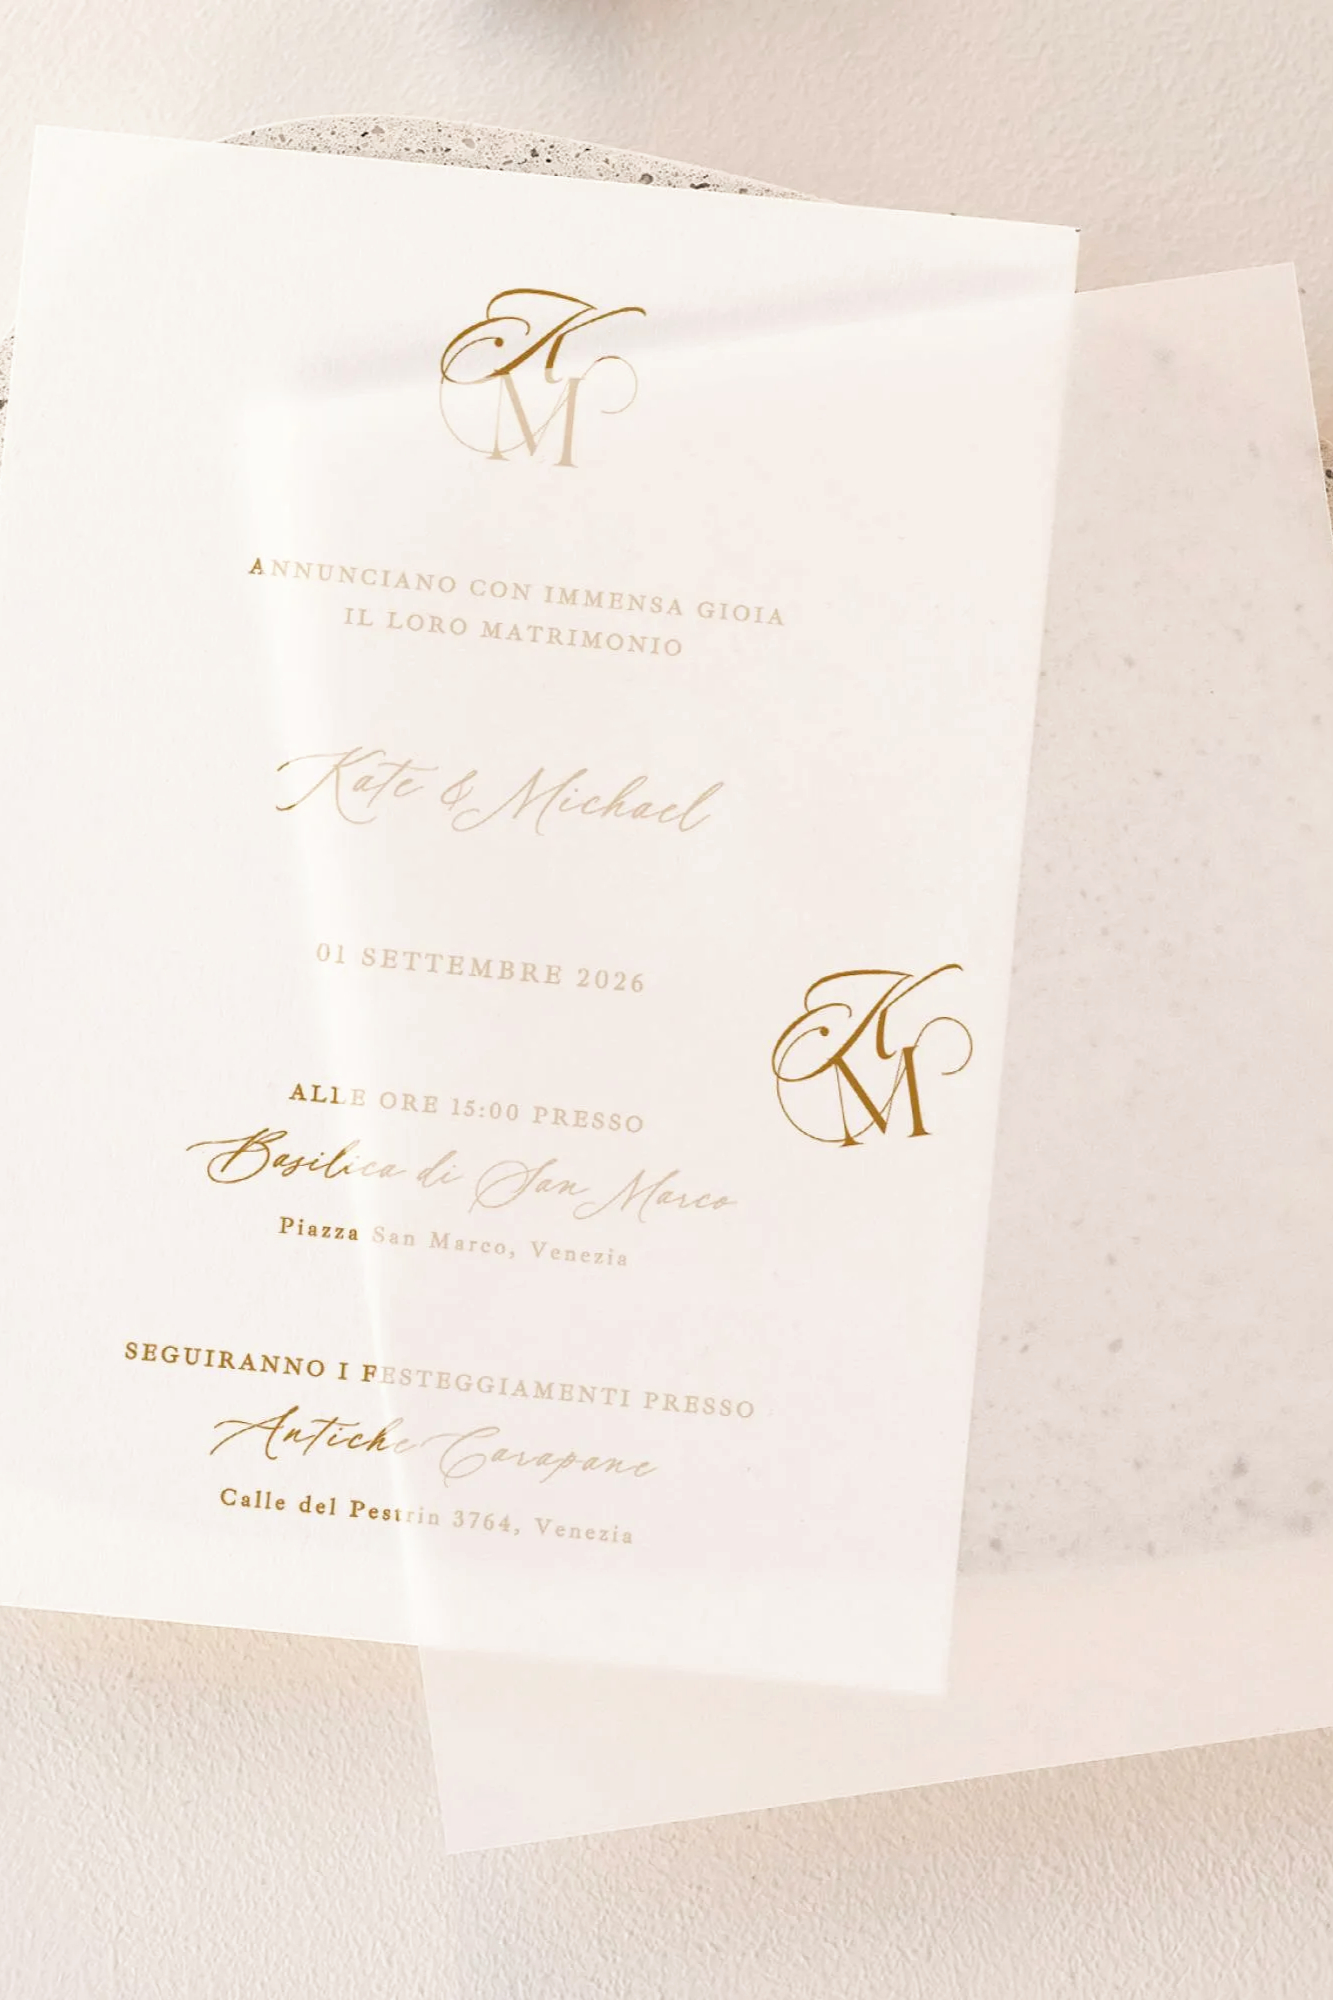 KM
ANNUNCIANO CON IMMENSA GIOIA
IL LORO MATRIMONIO
Kate & Michael
01 SETTEMBRE 2026
KM
ALLE ORE 15:00 PRESSO
Basilica di San Marco
Piazza San Marco, Venezia
SEGUIRANNO I FESTEGGIAMENTI PRESSO
Antiche Carapane
Calle del Pestrin 3764, Venezia